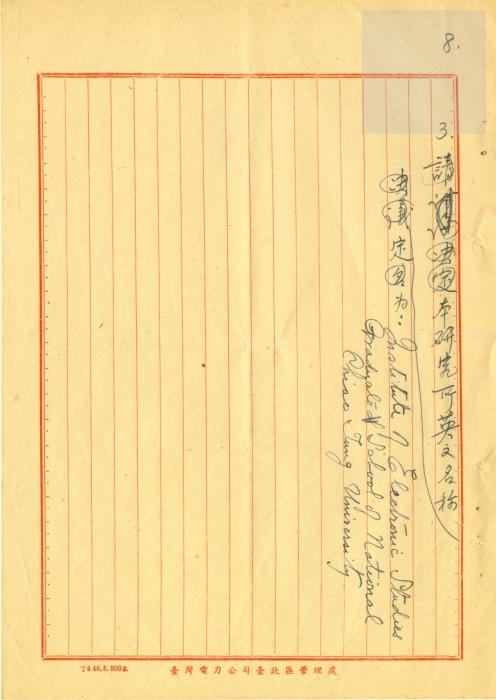 8.
3. 請決定本研究所英文名称
決議定名為：
Institute of Electronic Studies
Graduate School of National
Chiao-Tung University.
T4 46.5.500本 臺灣電力公司臺北區管理處